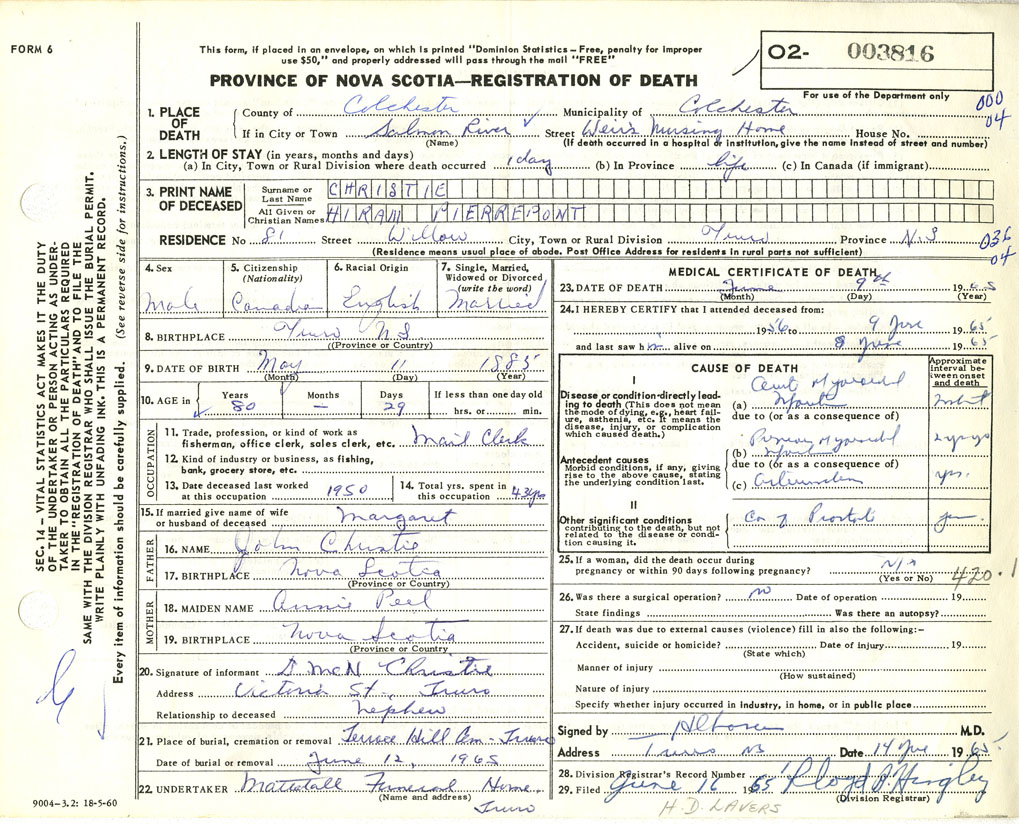 FORM 6
This form, if placed in an envelope, on which is printed "Dominion Statistics – Free, penalty for improper
use $50," and properly addressed will pass through the mail "FREE"
PROVINCE OF NOVA SCOTIA—REGISTRATION OF DEATH
02- 003816
For use of the Department only
000
04
1. PLACE OF DEATH
County of Colchester Municipality of Colchester
If in City or Town Salmon River Street Weir's Nursing Home House No.
(Name) (If death occurred in a hospital or institution, give the name instead of street and number)
2. LENGTH OF STAY (in years, months and days)
(a) In City, Town or Rural Division where death occurred 1 day (b) In Province life (c) In Canada (if immigrant)
3. PRINT NAME OF DECEASED
Surname or Last Name CHRISTIE
All Given or Christian Names HIRAM PIERREPONT
RESIDENCE No 81 Street Willow City, Town or Rural Division Truro Province N.S
(Residence means usual place of abode. Post Office Address for residents in rural parts not sufficient)
036
04
4. Sex
Male
5. Citizenship (Nationality)
Canadian
6. Racial Origin
English
7. Single, Married, Widowed or Divorced (write the word)
Married
8. BIRTHPLACE Truro N S
(Province or Country)
9. DATE OF BIRTH May 11 1885
(Month) (Day) (Year)
10. AGE in Years Months Days If less than one day old
80 – 29 hrs. or min.
OCCUPATION
11. Trade, profession, or kind of work as
fisherman, office clerk, sales clerk, etc. Mail Clerk
12. Kind of industry or business, as fishing,
bank, grocery store, etc.
13. Date deceased last worked at this occupation 1950
14. Total yrs. spent in this occupation 43 yrs
15. If married give name of wife or husband of deceased Margaret
FATHER
16. NAME John Christie
17. BIRTHPLACE Nova Scotia
(Province or Country)
MOTHER
18. MAIDEN NAME Annie Peel
19. BIRTHPLACE Nova Scotia
(Province or Country
20. Signature of informant D McN Christie
Address Victoria St., Truro
Relationship to deceased nephew
21. Place of burial, cremation or removal Terrace Hill Cem - Truro
Date of burial or removal June 12, 1965
22. UNDERTAKER Mattatall Funeral Home
(Name and address) Truro
MEDICAL CERTIFICATE OF DEATH
23. DATE OF DEATH June 9th 1965
(Month) (Day) (Year)
24. I HEREBY CERTIFY that I attended deceased from:
1956 to 9 June 1965
and last saw him alive on 8 June 1965
CAUSE OF DEATH
Approximate interval between onset and death
I
Disease or condition directly leading to death (This does not mean the mode of dying, e.g., heart failure, asthenia, etc. It means the disease, injury, or complication which caused death.)
(a) Acute Myocardial
Infarct
due to (or as a consequence of)
Antecedent causes
Morbid conditions, if any, giving rise to the above cause, stating the underlying condition last.
Previous Myocardial
(b) Infarct
due to (or as a consequence of)
(c) yrs.
II
Other significant conditions contributing to the death, but not related to the disease or condition causing it.
Ca of Prostate
25. If a woman, did the death occur during
pregnancy or within 90 days following pregnancy? N/A
(Yes or No)
420.1
26. Was there a surgical operation? no Date of operation 19
State findings Was there an autopsy?
27. If death was due to external causes (violence) fill in also the following:–
Accident, suicide or homicide? Date of Injury 19
(State which)
Manner of injury
(How sustained)
Nature of injury
Specify whether injury occurred in industry, in home, or in public place
Signed by M.D.
Address Truro NS Date 14 June 1965
28. Division Registrar's Record Number
29. Filed June 16 1965 Lloyd A. Hingley
(Division Registrar)
H. D. LAVERS
9004–3.2: 18-5-60
SEC. 14 – VITAL STATISTICS ACT MAKES IT THE DUTY
OF THE UNDERTAKER OR PERSON ACTING AS UNDER-
TAKER TO OBTAIN ALL THE PARTICULARS REQUIRED
IN THE "REGISTRATION OF DEATH" AND TO FILE THE
SAME WITH THE DIVISION REGISTRAR WHO SHALL ISSUE THE BURIAL PERMIT.
WRITE PLAINLY WITH UNFADING INK. THIS IS A PERMANENT RECORD.
Every item of information should be carefully supplied. (See reverse side for instructions.)